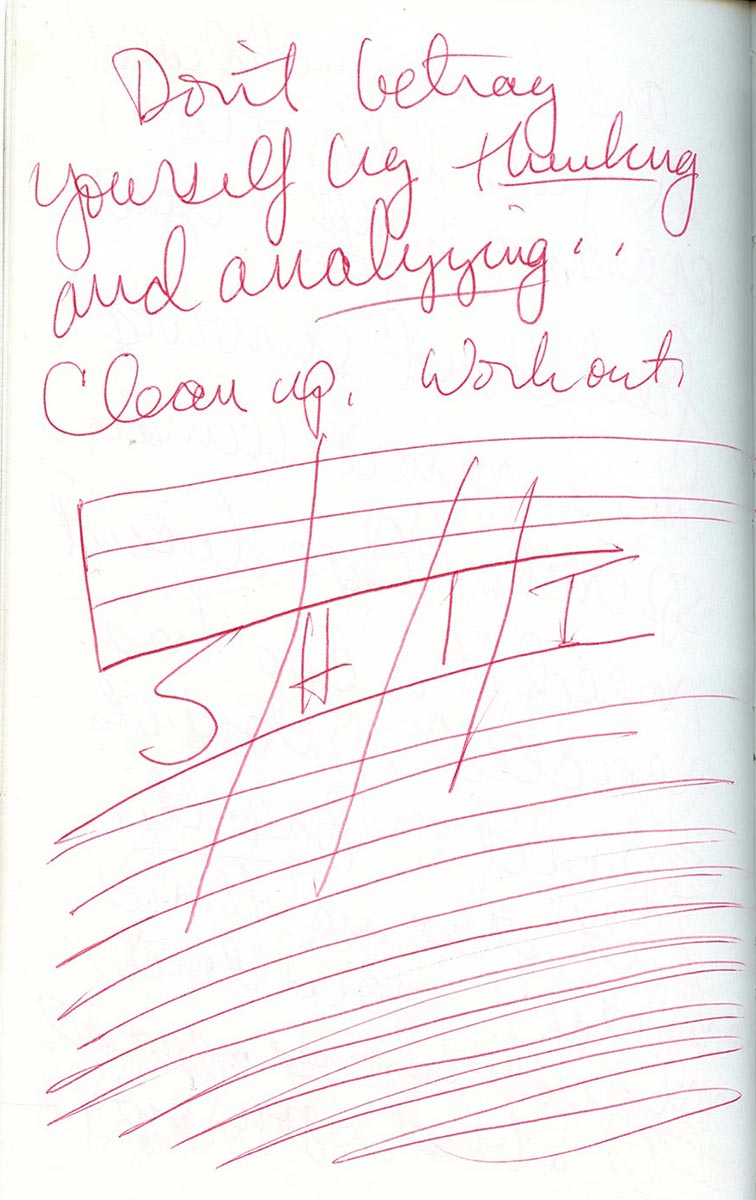 Don't betray
yourself by thinking
and analyzing...
Clean up. Workout.
S H I T